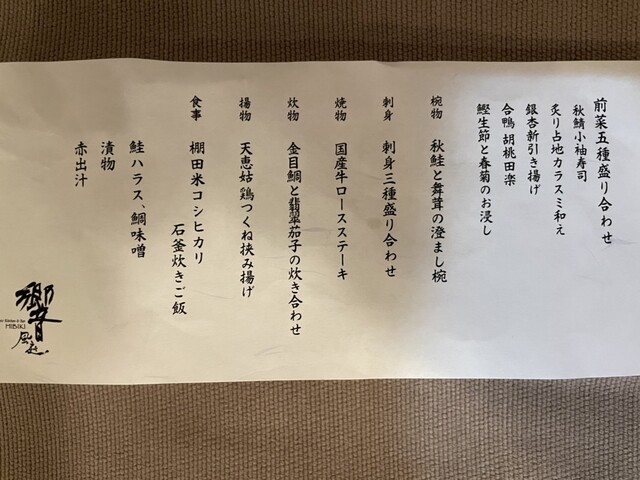 前菜五種盛り合わせ
秋鯖小袖寿司
炙り占地カラスミ和え
銀杏新引き揚げ
合鴨 胡桃田楽
鰹生節と春菊のお浸し
椀物 秋鮭と舞茸の澄まし椀
刺身 刺身三種盛り合わせ
焼物 国産牛ロースステーキ
炊物 金目鯛と翡翠茄子の炊き合わせ
揚物 天恵姑 鶏つくね挟み揚げ
食事 棚田米コシヒカリ
石釜炊きご飯
鮭ハラス、鯛味噌
漬物
赤出汁
響
HIBIKI
風庭